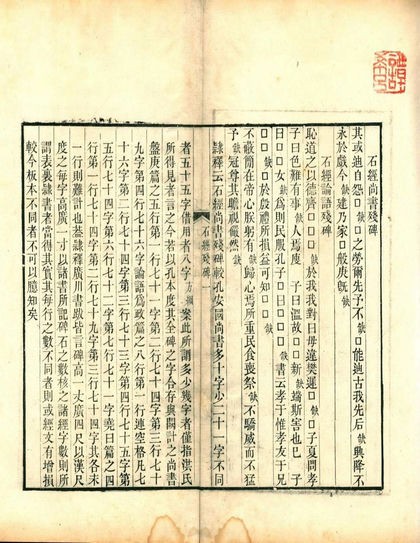 石經尚書殘碑
其或迪自怨□缺□之勞爾先予不缺□能迪古我先后缺興降不
永於戲今缺建乃家□般庚旣缺
石經論語殘碑
恥道之以德齊□□□缺於我我對曰毋違樊遲□缺□子夏問孝
子曰色難有事缺人焉廋 子曰溫故□□新缺端斯害也已 子
□□□女缺爲則民服孔子□曰□□□缺書云孝于惟孝友于兄
□□□□缺於殷禮所損益可知□□缺
不敢簡在帝心朕躬有缺歸心焉所重民食喪祭缺不驕威而不猛
予缺冠尊其瞻視儼然缺
隸釋云石經尚書殘碑較孔安國尚書多十字少二十一字不同
石經殘碑 一
者五十五字借用者八字 案此所謂多少幾字者僅指洪氏
所得見者言之今若以孔本度其全碑之字合存與闕計之尚書
盤庚篇之五行第一行七十一字第二行七十四字第三行七十
九字第四行七十六字論語爲政篇之八行第一行連空格凡七
十六字第二行七十四字第三行七十三字第四行七十五字第
五行七十四字第六行七十七字第七行七十一字堯曰篇之四
行第一行七十四字第二行七十九字第三行七十四字其各末
一行則難計也葢隸釋廣川書跋皆言碑高一丈廣四尺以漢尺
度之每字高廣一寸以諸書所記碑石之數核之諸經字數則所
謂表裏隸書者當得其實其每行之數不同者則或經文有增損
較今板本不同者不可以臆知矣